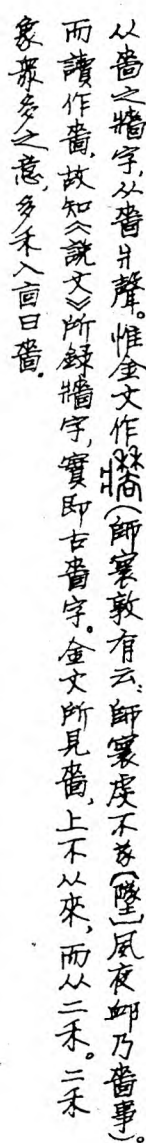 从嗇之牆字,从嗇爿聲。惟金文作牆(師寰敦有云:師寰虔不㒸[墜]夙夜卹乃嗇事)。
而讀作嗇,故知《說文》所錄牆字,實即古嗇字。金文所見嗇,上不从來,而从二禾。二禾
象衆多之意,多禾入㐭曰嗇。